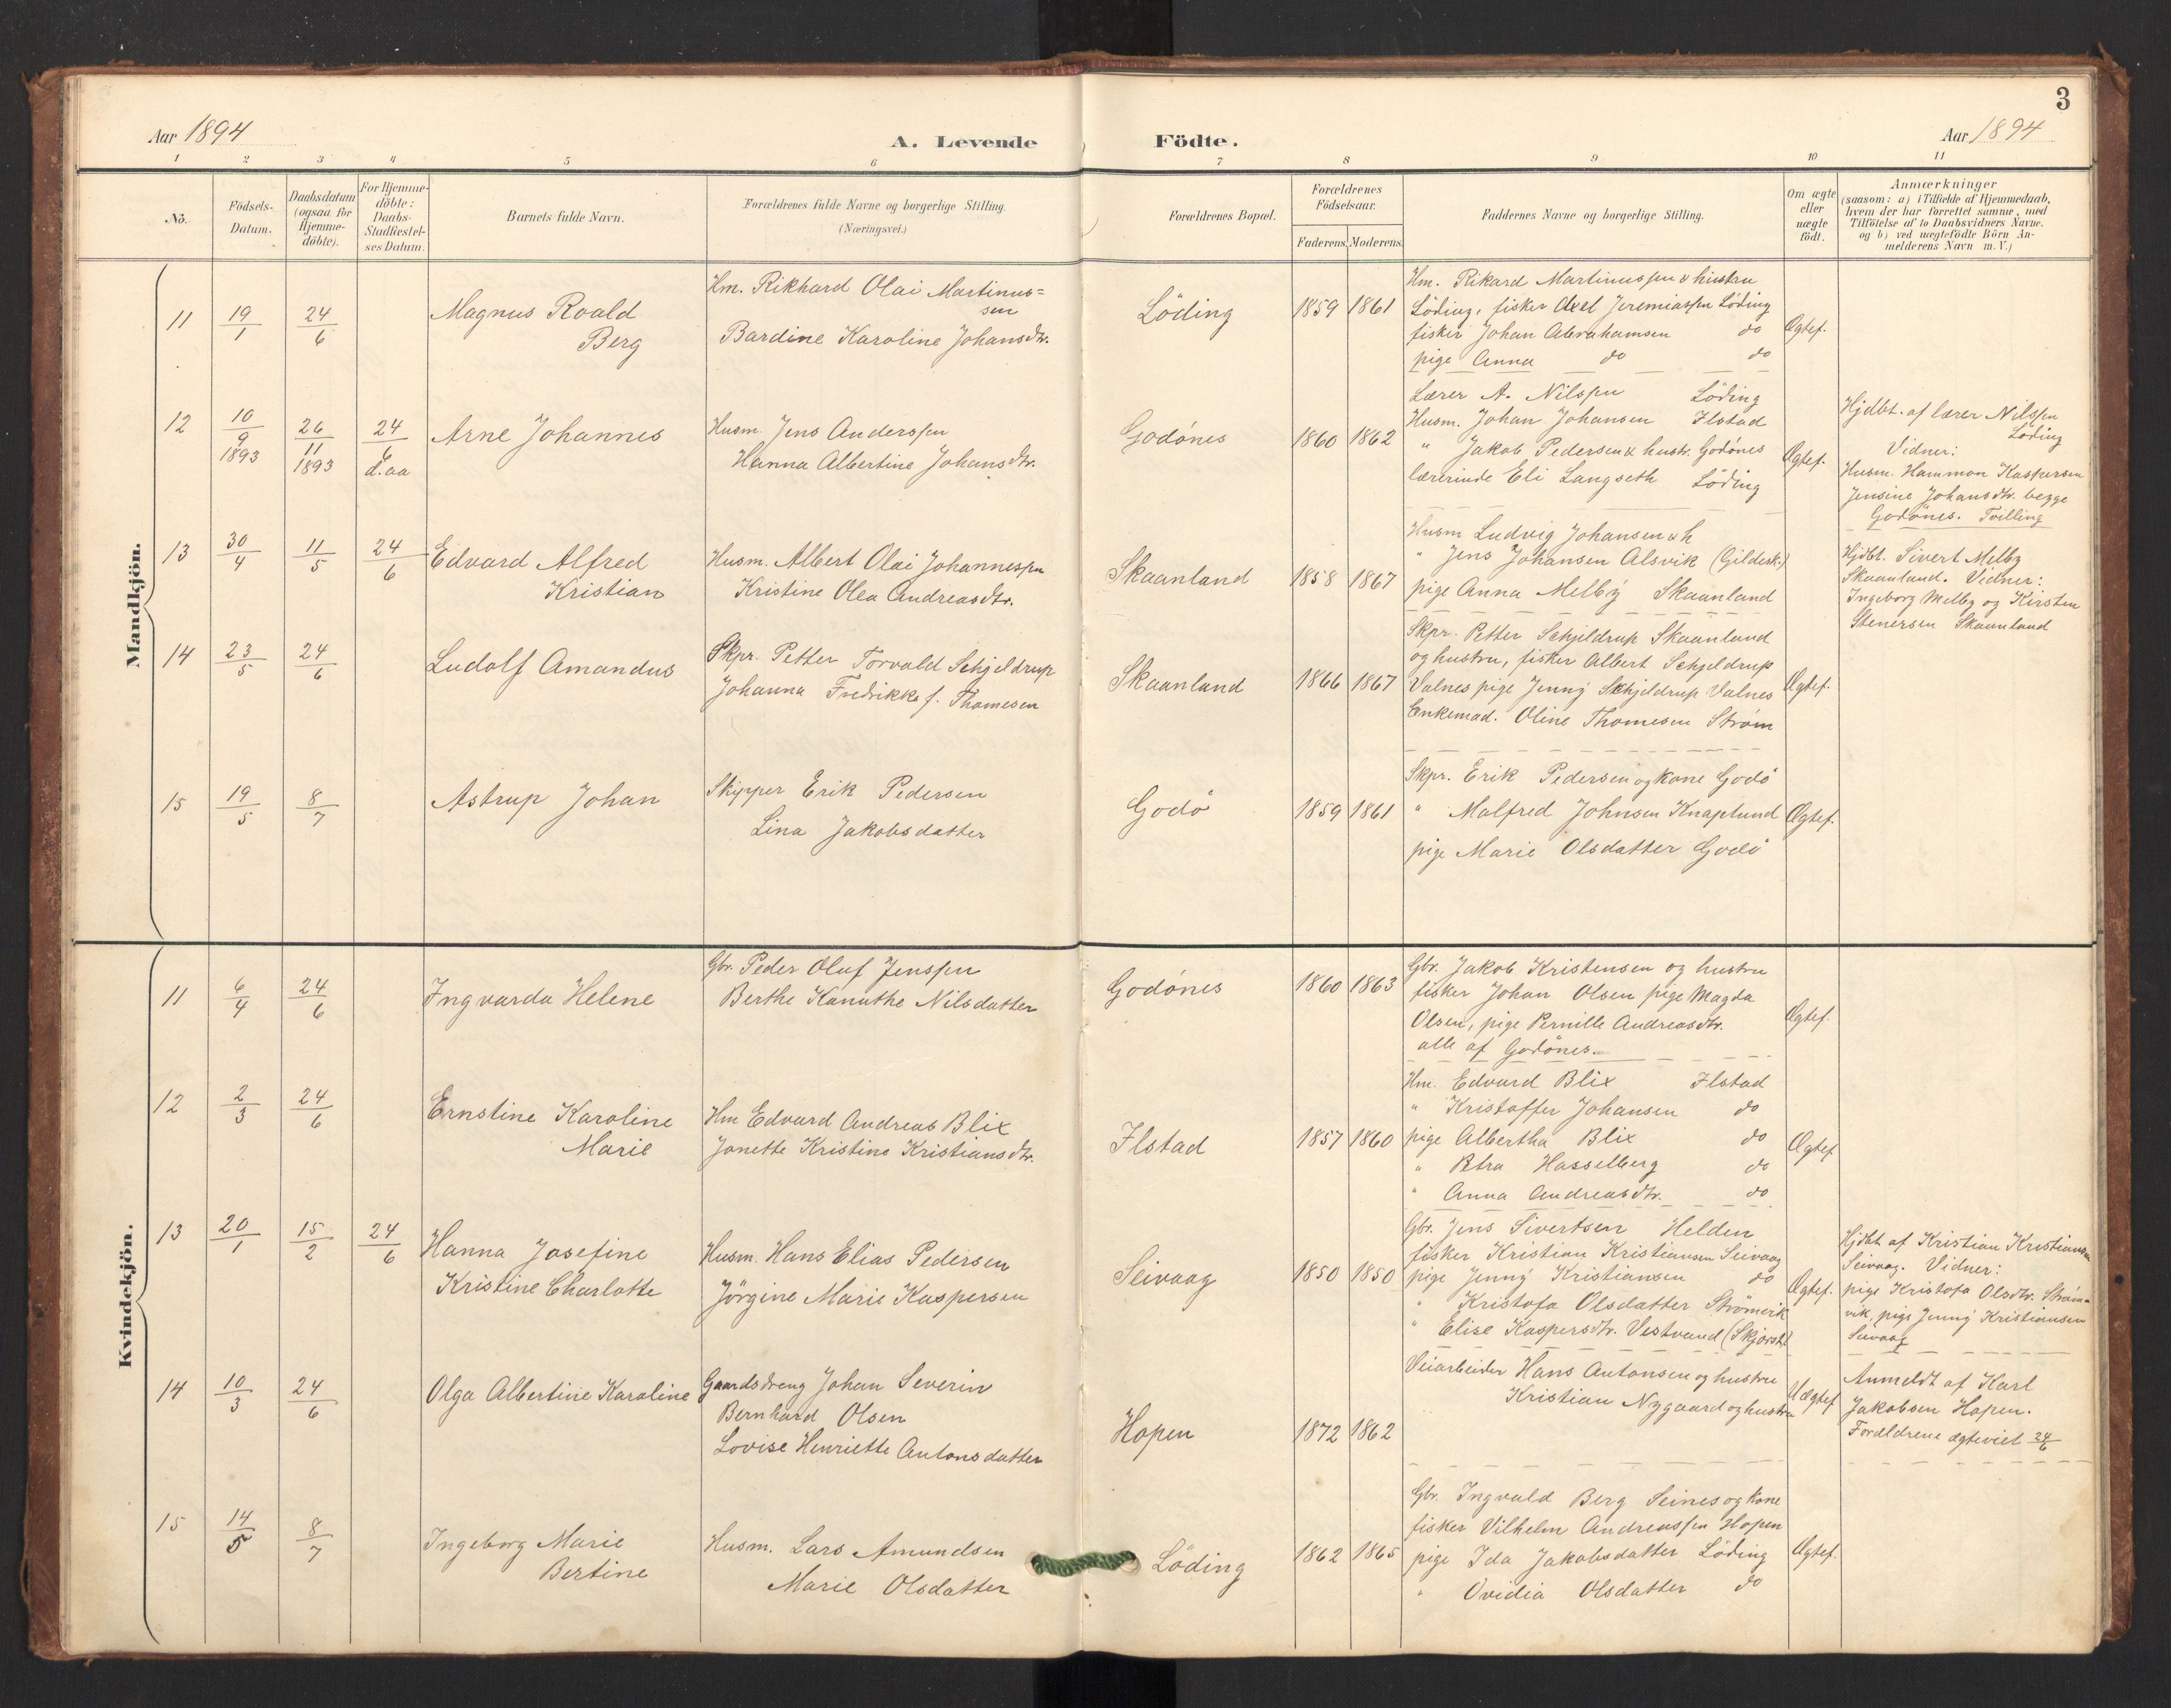 3
Aar 1894
A. Levende Födte.
Aar 1894
1 2 3 4 5 6 7 8 9 10 11
No.
Födsels-
Datum.
Daabsdatum
(ogsaa for
Hjemme-
döbte).
For Hjemme-
döbte:
Daabs-
Stadfæstel-
ses Datum.
Barnets fulde Navn.
Forældrenes fulde Navne og borgerlige Stilling.
(Næringsvei.)
Forældrenes Bopæl.
Forældrenes
Födselsaar.
Faderens. Moderens.
Faddernes Navne og borgerlige Stilling.
Om ægte
eller
uægte
födt.
Anmærkninger
(saasom: a) i Tilfælde af Hjemmedaab,
hvem der har forrettet samme, med
Tilföielse af to Daabsvidners Navne.
og b) ved uægtefödte Börn An-
melderens Navn m. V.)
Mandkjön.
11
19/1
24/6
Magnus Roald
Berg
Hm. Rikhard Olai Martinus=
sen
Bardine Karoline Johansdtr.
Löding
1859 1861
Hm. Rikard Martinussen & hustru
Löding, fisker Axel Jeremiassen Löding
fisker Johan Abrahamsen do
pige Anna do do
Ægtef.
12
10/9
1893
26/11
1893
24/6
d. aa
Arne Johannes
Husm. Jens Anderssen
Hanna Albertine Johansdtr.
Godönes
1860 1862
Lærer A. Nilssen Löding
Husm. Johan Johansen Ilstad
" Jakob Pedersen & hustr. Godönes
lærerinde Eli Langseth Löding
Ægtef.
Hjdbt. af lærer Nilssen
Löding
Vidner:
Husm. Hammon Kaspersen
Jensine Johansdtr. begge
Godönes. Tvilling
13
30/4
11/5
24/6
Edvard Alfred
Kristian
Husm. Albert Olai Johannessen
Kristine Olea Andreasdtr.
Skaanland
1858 1867
Husm Ludvig Johansen & h
" Jens Johansen Alsvik (Gildesk.)
pige Anna Melby Skaanland
Hjdbt. Sivert Melby
Skaanland. Vidner:
Ingeborg Melby og Kirsten
Stenersen Skaanland
14
23/5
24/6
Ludolf Amandus
Skpr. Petter Torvald Schjeldrup
Johanna Fredrikke f. Thomesen
Skaanland
1866 1867
Skpr. Petter Schjeldrup Skaanland
og hustru, fisker Albert Schjeldrup
Valnes pige Jenny Schjeldrup Valnes
Enkemad. Oline Thomesen Ström
Ægtef.
15
19/5
8/7
Astrup Johan
Skipper Erik Pedersen
Lina Jakobsdatter
Godö
1859 1861
Skpr. Erik Pedersen og kone Godö
" Malfred Johnsen Knaplund
pige Marie Olsdatter Godö
Ægtef.
Kvindekjön.
11
6/4
24/6
Ingvarda Helene
Gbr. Peder Oluf Jenssen
Berthe Kanuthe Nilsdatter
Godönes
1860 1863
Gbr. Jakob Kristensen og hustru
fisker Johan Olsen pige Magda
Olsen, pige Pernille Andreasdtr.
alle af Godönes.
Ægtef.
12
2/3
24/6
Ernstine Karoline
Marie
Hm Edvard Andreas Blix
Janette Kristine Kristiansdtr.
Ilstad
1857 1860
Hm. Edvard Blix Ilstad
" Kristoffer Johansen do
pige Albertha Blix do
" Petra Hasselberg do
" Anna Andreasdtr. do
Ægtef
13
20/1
15/2
24/6
Hanna Josefine
Kristine Charlotte
Husm. Hans Elias Pedersen
Jörgine Marie Kaspersen
Seivaag
1850 1850
Gbr. Jens Sivertsen Helden
fisker Kristian Kristiansen Seivaag
pige Jenny Kristiansen do
" Kristofa Olsdatter Strömvik
" Elise Kaspersdtr. Vestvand (Skjerst.)
Ægtef.
Hjdbt af Kristian Kristiansen
Seivaag. Vidner:
pige Kristofa Olsdtr. Ström-
vik, pige Jenny Kristiansen
Seivaag
14
10/3
24/6
Olga Albertine Karoline
Gaardsdreng Johan Severin
Bernhard Olsen
Lovise Henriette Antonsdatter
Hopen
1872 1862
Veiarbeider Hans Antonsen og hustru
Kristian Nygaard og hustru
Uægtef
Anmeldt af Karl
Jakobsen Hopen.
Forældrene ægteviet 24/6
15
14/5
8/7
Ingeborg Marie
Bertine
Husm. Lars Amundsen
Marie Olsdatter
Löding
1862 1865
Gbr. Ingvald Berg Seines og kone
fisker Vilhelm Andreassen Hopen
pige Ida Jakobsdatter Löding
" Ovidia Olsdatter do
Ægtef.